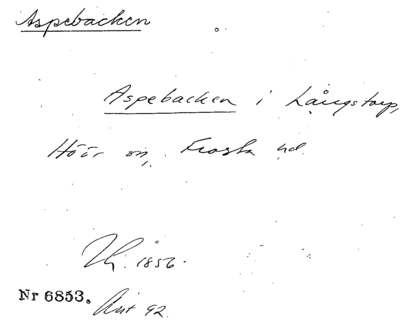 Aspebacken
Aspebacken i Långstorp,
Höör sn, Frosta hd.
1856.
Nr 6853.
Ant 92.